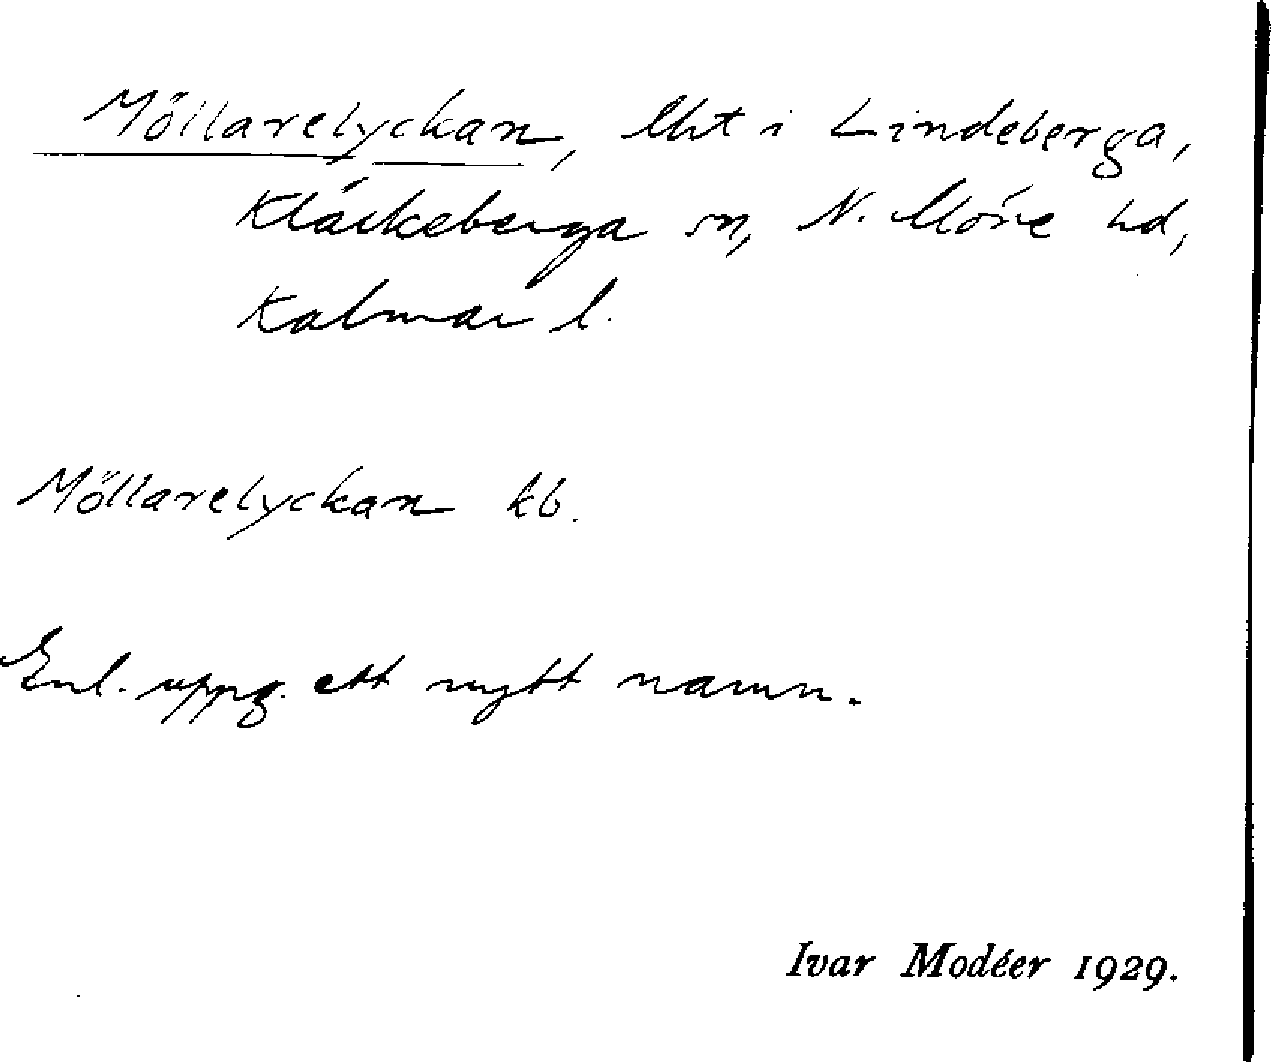 Möllarelyckan, lht i Lindeberga,
Kläckeberga sn, N. Möre hd,
Kalmar l.
Möllarelyckan kb.
Enl. uppg. ett nytt namn.
Ivar Modéer 1929.